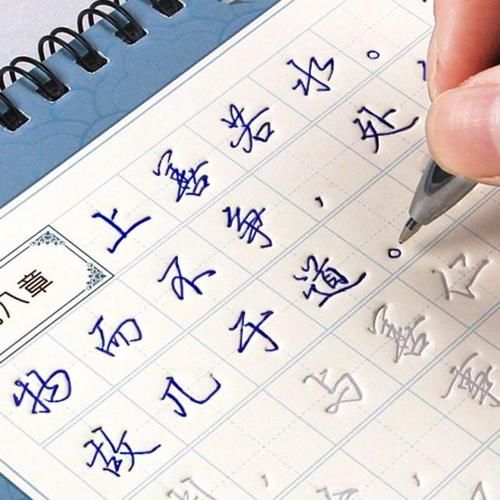 八章
上善若水。
物而不争，处
故几于道。
，与善仁
事